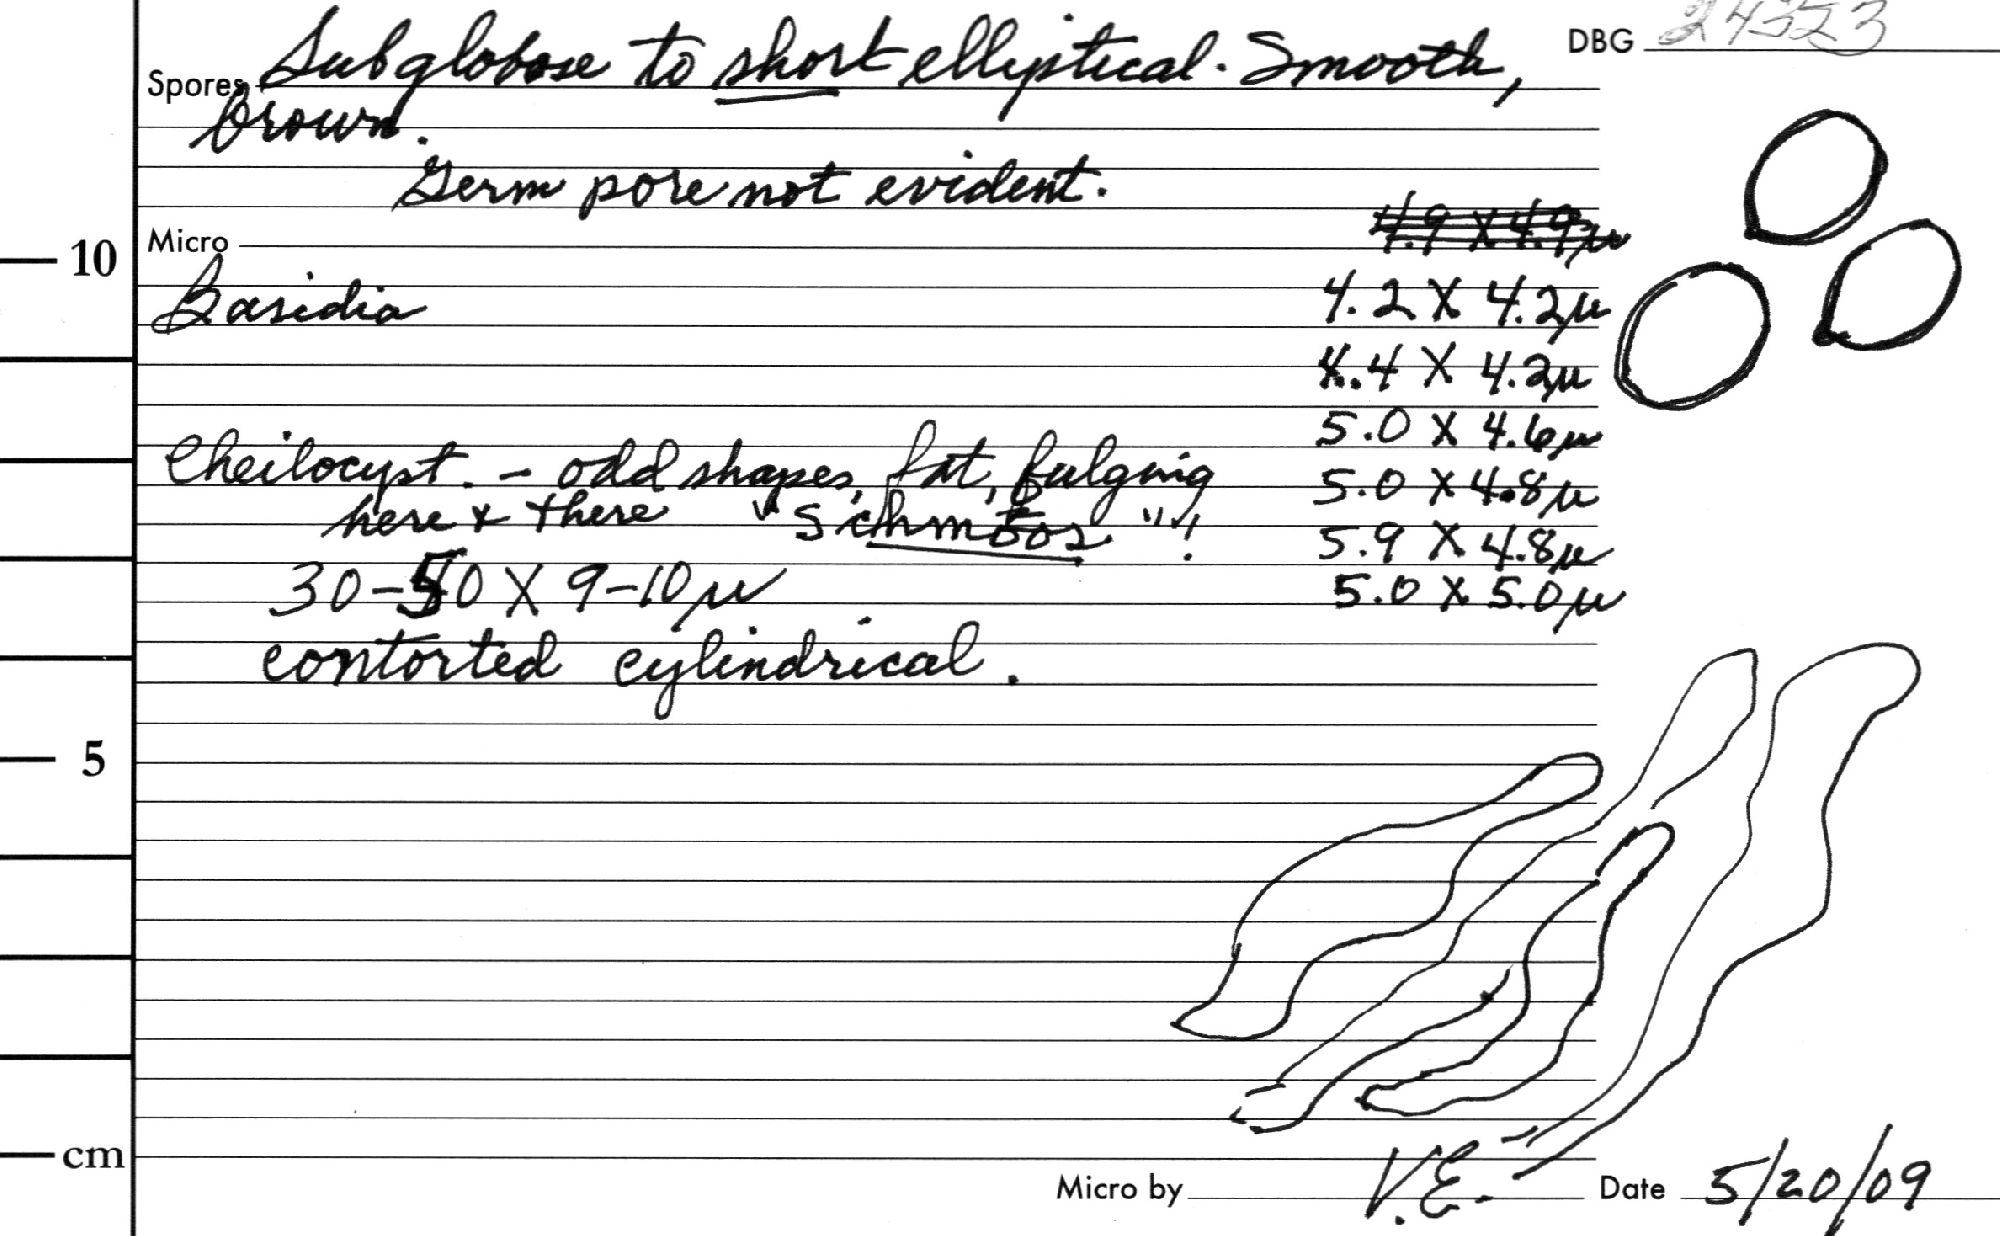 DBG 24323
Spores Subglobose to short elliptical. Smooth,
brown.
Germ pore not evident.
4.9 X 4.9µ
10
Micro
Basidia
4.2 X 4.2µ
4.4 X 4.2µ
5.0 X 4.6µ
Cheilocyst. - odd shapes, fat, bulging
5.0 X 4.8µ
here & there "Schmoos"!
5.9 X 4.8µ
30-50 X 9-10µ
5.0 X 5.0µ
contorted cylindrical.
5
cm
Micro by V.E. Date 5/20/09